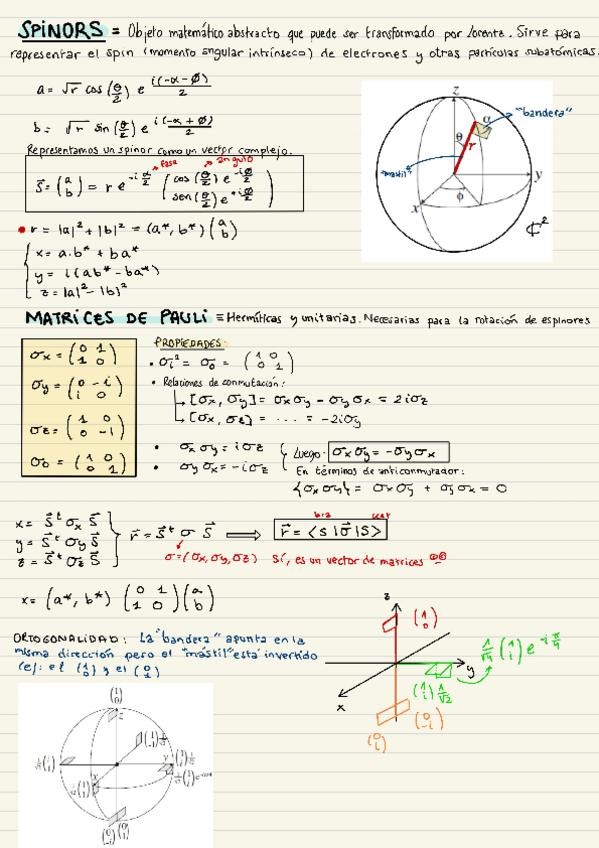 SPINORS = Objeto matemático abstracto que puede ser transformado por Lorentz. Sirve para
representar el spin (momento angular intrínseco) de electrones y otras partículas subatómicas.
a = √r cos(θ/2) e^(i(-α-φ)/2)
b = √r sin(θ/2) e^(i(-α+φ)/2)
Representamos un spinor como un vector complejo.
fase ángulo
s⃗ = (a b) = r e^(-i α/2) ( cos(θ/2) e^(-iφ/2) sen(θ/2) e^(+iφ/2) )
z
α
"bandera"
θ
r
"mástil"
y
φ
x
ℂ²
r = |a|² + |b|² = (a*, b*) (a b)
x = a·b* + ba*
y = i(ab* - ba*)
z = |a|² - |b|²
MATRICES DE PAULI = Hermíticas y unitarias. Necesarias para la rotación de espinores
σx = (0 1 / 1 0)
σy = (0 -i / i 0)
σz = (1 0 / 0 -1)
σ0 = (1 0 / 0 1)
PROPIEDADES:
• σi² = σ0 = (1 0 / 0 1)
• Relaciones de conmutación:
↳ [σx, σy] = σxσy - σyσx = 2iσz
↳ [σx, σz] = ... = -2iσy
• σxσy = iσz
• σyσx = -iσz
Luego σxσy = -σyσx
En términos de anticonmutador:
{σxσy} = σxσy + σyσx = 0
x = s⃗† σx s⃗
y = s⃗† σy s⃗
z = s⃗† σz s⃗
r⃗ = s⃗† σ s⃗ ⟹ r⃗ = <S|σ⃗|S>
bra ket
σ = (σx, σy, σz) Sí, es un vector de matrices
x = (a*, b*) (0 1 / 1 0) (a b)
ORTOGONALIDAD: La "bandera" apunta en la
misma dirección pero el "mástil" está invertido
(ej: el (1 0) y el (0 i)
z
(1 0)
y
x
(1 i) 1/√2
(0 i)
(0 -i)